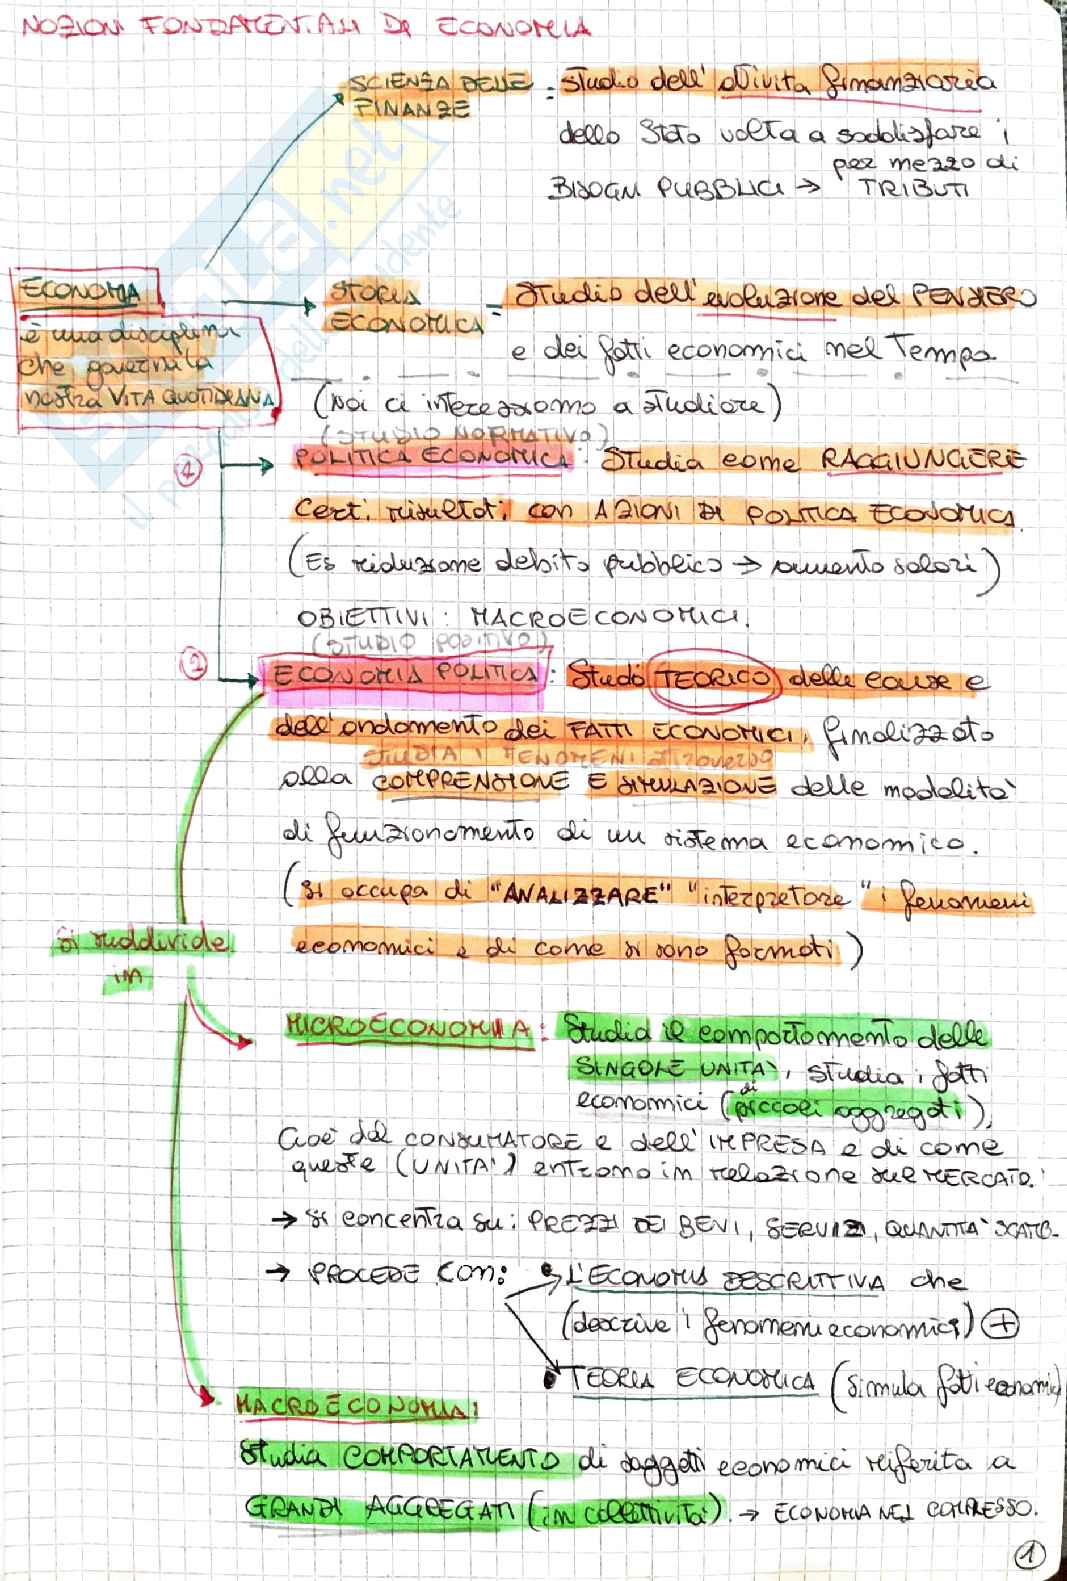 NOZIONI FONDAMENTALI DI ECONOMIA
SCIENZA DELLE = Studio dell'attivita finanziaria
FINANZE
dello Stato volta a soddisfare i
per mezzo di
BISOGNI PUBBLICI → TRIBUTI
ECONOMIA
è una disciplina
che governa la
nostra VITA QUOTIDIANA
STORIA = Studio dell'evoluzione del PENSIERO
ECONOMICA
e dei fatti economici nel Tempo
(Noi ci interessiamo a studiare)
(STUDIO NORMATIVO)
① POLITICA ECONOMICA: Studia come RAGGIUNGERE
certi risultati con AZIONI DI POLITICA ECONOMICA.
(Es riduzione debito pubblico → aumento salari)
OBIETTIVI: MACROECONOMICI.
(STUDIO POSITIVO)
② ECONOMIA POLITICA: Studio TEORICO delle cause e
dell'andamento dei FATTI ECONOMICI, finalizzato
STUDIA I FENOMENI attraverso
alla COMPRENSIONE E SIMULAZIONE delle modalità
di funzionamento di un sistema economico.
(Si occupa di "ANALIZZARE" "interpretare" i fenomeni
economici e di come si sono formati)
Si suddivide
in
MICROECONOMIA: Studia il comportamento delle
SINGOLE UNITA', studia i fatti
economici (di piccoli aggregati),
Cioè del CONSUMATORE e dell'IMPRESA e di come
queste (UNITA') entrano in relazione sul MERCATO.
→ Si concentra su: PREZZI DEI BENI, SERVIZI, QUANTITA' SCAMB.
→ PROCEDE CON: • L'ECONOMIA DESCRITTIVA che
(descrive i fenomeni economici) +
• TEORIA ECONOMICA (Simula fatti economici)
MACROECONOMIA:
Studia COMPORTAMENTO di soggetti economici riferita a
GRANDI AGGREGATI (in collettività) → ECONOMIA NEL COMPLESSO.
1